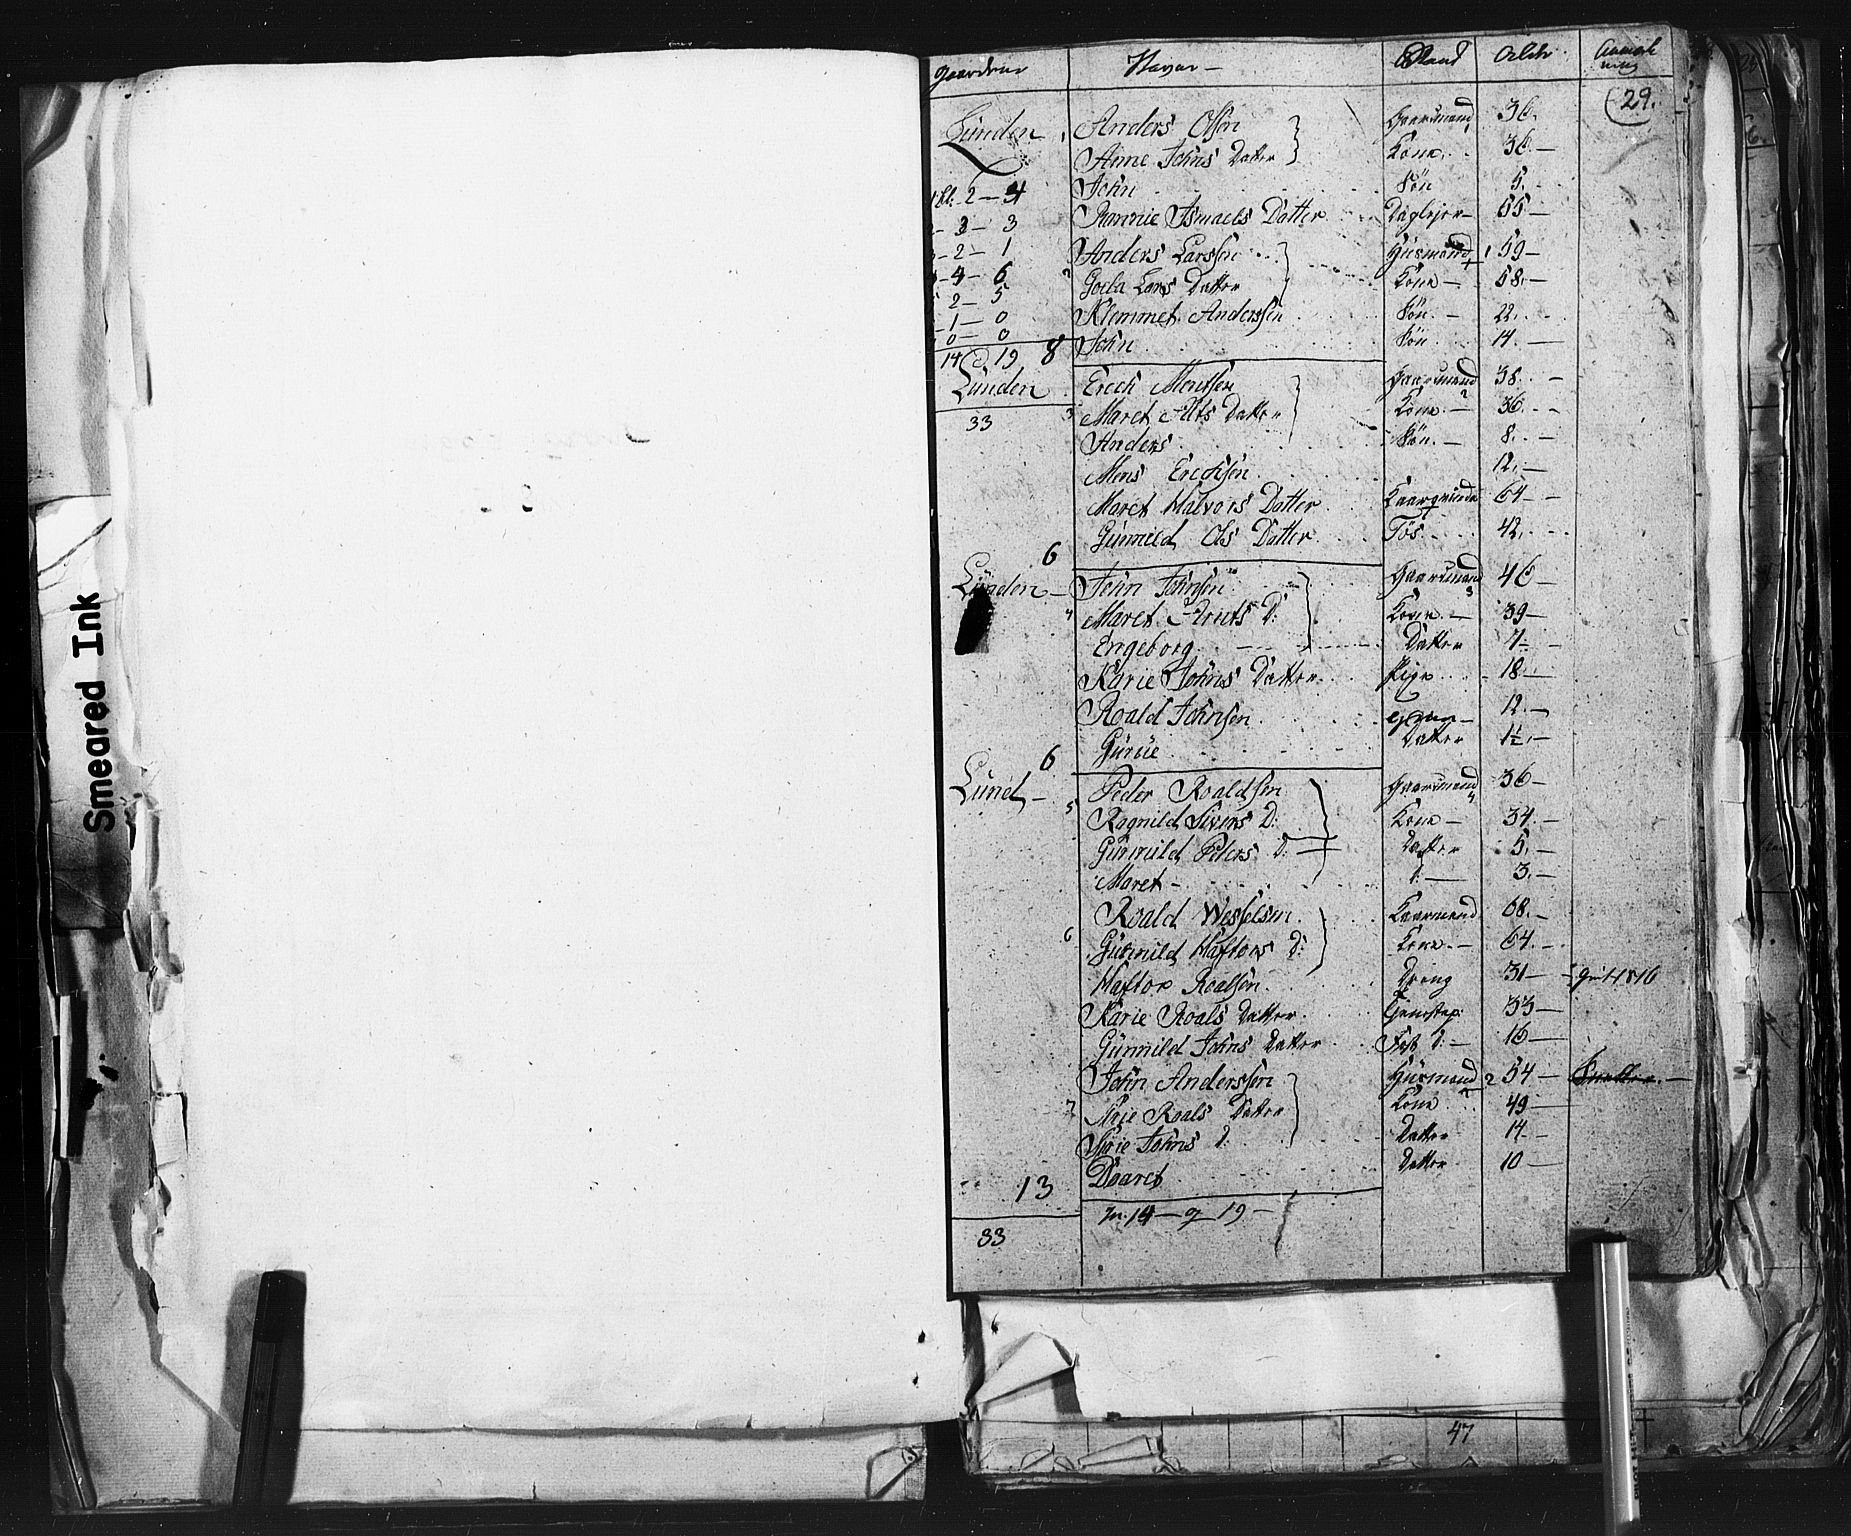 Smeared Ink
Gaardene Navne — Stand Alder Anmærkning
(29.
Lünden 1 Anders Olsen Gaardmand 1 36.
Anne Johns Datter Kone 36 —
2 — 4 John Søn 5.
3 — 3 Ismaels Datter 55 —
2 — 1 Anders Larssen Huusmand 1 59 —
4 — 6 2 Lars Datter Kone — 58. —
2 — 5 Klemmet Anderssen Søn — 22.
1 — 0
0 — 0 John Søn 14. —
14 19 8
Lünden Erich Gaardmand 2 38. —
33 3 Maret Datter Kone — 36. —
Anders Søn — 8. —
Mons Erichsen 12. —
Maret Halvors Datter 64 —
6 Gunnild Ols Datter Tøs 42.
Lünden — John Johnsen Gaardmand 3 46 —
4 Maret D: Kone — 39 —
Engeborg Datter 7 —
Karie Johns Datter Pige 18. —
Roald Johnsen 12. —
6 Gurüe Datter 1½. —
Lünd — Peder Roaldsen Gaardmand 4 36 —
5 Ragnild Sivers D: Kone — 34. —
Gunnild Peders D: Datter 5. —
Maret — D: — 3. —
Roald Wesselsen Kaarmand 68. —
6 Gunnild Haftors D: Kone — 64. —
Haftor Roalsen Dreng 31 — 1816
Karie Roals Datter 33 —
Gunnild Johns Datter D: — 16 —
John Anderssen Huusmand 2 54 —
7 Roals Datter Kone 49 —
Johns D: Datter 14 —
13 Daaret Datter 10 —
m. 14 — q 19 —
33
47